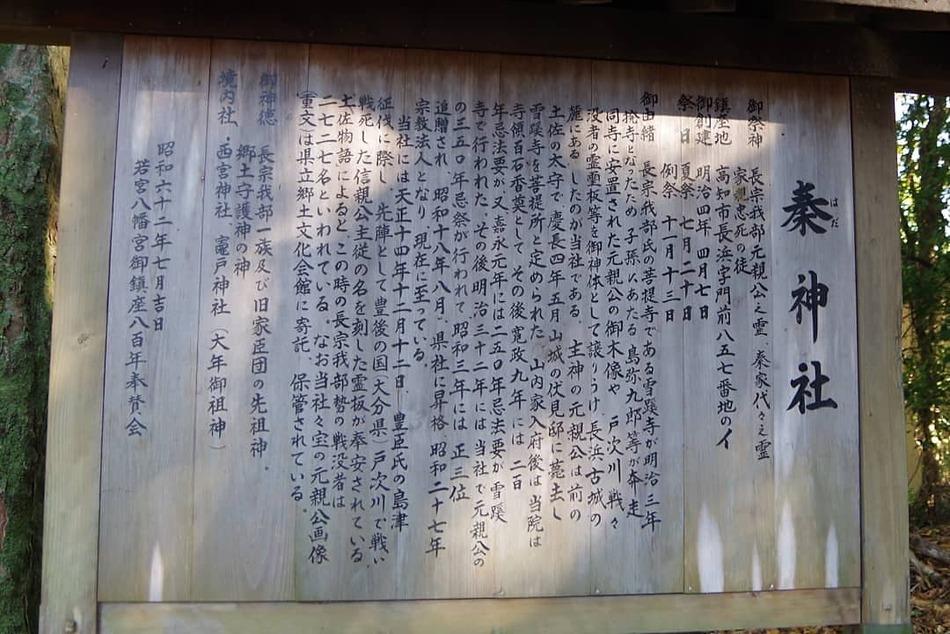 秦神社
はだ
御祭神 長宗我部元親公之霊、秦家代々之霊
家親忠死の徒
鎮座地 高知市長浜字門前八五七番地のイ
御創建 明治四年四月七日
祭日 夏祭 七月二十日
例祭 十一月十三日
御由緒 長宗我部氏の菩提寺である雪蹊寺が明治三年
廃寺となったため、子孫にあたる島弥九郎等が奔走し
同寺に安置された元親公の御木像や、戸次川戦々
没者の霊璽板等を御神体として譲りうけ、長浜古城の
麓にある したのが当社である。主神の元親公は前の
土佐の太守で、慶長四年五月山城の伏見邸に薨去し
雪蹊寺を菩提所と定められた。山内家入府後は当院は
寺領百石香奠として、その後寛政九年には二百
年忌法要が又嘉永元年には二五〇年忌法要が雪蹊
寺で行われた。その後明治三十二年には当社で元親公の
の三五〇年忌祭が行われて、昭和三年には正三位
追贈され、昭和十八年八月、県社に昇格、昭和二十七年
宗教法人となり、現在に至っている。
当社には天正十四年十二月十二日、豊臣氏の島津
征伐に際し、先陣として豊後の国(大分県)戸次川で戦い
戦死した信親公主従の名を刻した霊板が奉安されている
土佐物語によると、この時の長宗我部勢の戦没者は
二七二七名といわれている。なお当社々宝の元親公画像
(重文)は県立郷土文化会館に寄託、保管されている。
御神徳 長宗我部一族及び旧家臣団の先祖神、
郷土守護神の神
境内社 ・西宮神社 竃戸神社(大年御祖神)
昭和六十二年七月吉日
若宮八幡宮御鎮座八百年奉賛会